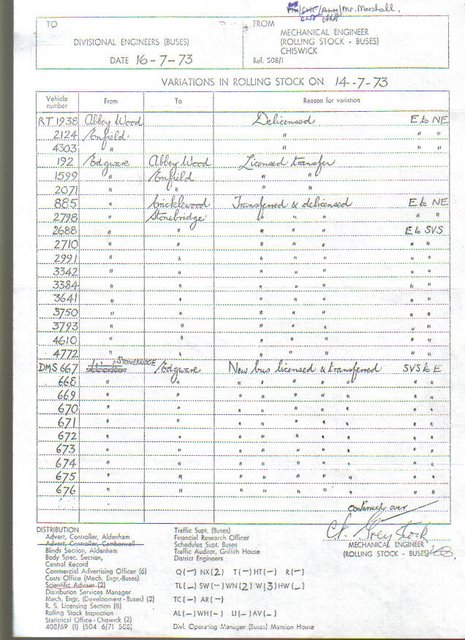 Mr. Marshall.
TO
DIVISIONAL ENGINEERS (BUSES)
DATE 16-7-73
FROM
MECHANICAL ENGINEER
(ROLLING STOCK - BUSES)
CHISWICK
Ref. 508/1
VARIATIONS IN ROLLING STOCK ON 14-7-73
Vehicle number From To Reason for variation
RT 1938 Abbey Wood Delicensed E to NE
2124 Enfield " " "
4303 " " " "
192 Edgware Abbey Wood Licensed transfer
1599 " Enfield " "
2071 " " " "
885 " Cricklewood Transferred & delicensed E to NE
2798 " Stonebridge " " " " "
2688 " " " " " E to SVS
2710 " " " " " " "
2991 " " " " " " "
3342 " " " " " " "
3384 " " " " " " "
3641 " " " " " " "
3750 " " " " " " "
3793 " " " " " " "
4610 " " " " " " "
4772 " " " " " " "
DMS 667 STONEBRIDGE Edgware New bus licensed & transferred SVS to E
668 " " " " " " " "
669 " " " " " " " "
670 " " " " " " " "
671 " " " " " " " "
672 " " " " " " " "
673 " " " " " " " "
674 " " " " " " " "
675 " " " " " " " "
676 " " " " " " " "
continued over
DISTRIBUTION
Advert. Controller, Aldenham
Advert. Controller, Camberwell
Blinds Section, Aldenham
Body Spec. Section,
Central Record
Commercial Advertising Officer (6)
Costs Office (Mech. Engr.-Buses)
Scientific Adviser (2)
Distribution Services Manager
Mech. Engr. (Development - Buses) (2)
R. S. Licensing Section (8)
Rolling Stock Inspection
Statistical Office - Chiswick (2)
408/69 (1) (504 6/71 508)
Traffic Supt. (Buses)
Financial Research Officer
Schedules Supt. Buses
Traffic Auditor, Griffith House
District Engineers
Q (-) NX (2) T (-) HT (-) R (-)
TL (-) SW (-) WN (2) W (3) HW (-)
TC (-) AR (-)
AL (-) WH (-) LI (-) AV (-)
Divl. Operating Manager (Buses) Mansion House
MECHANICAL ENGINEER
(ROLLING STOCK - BUSES)